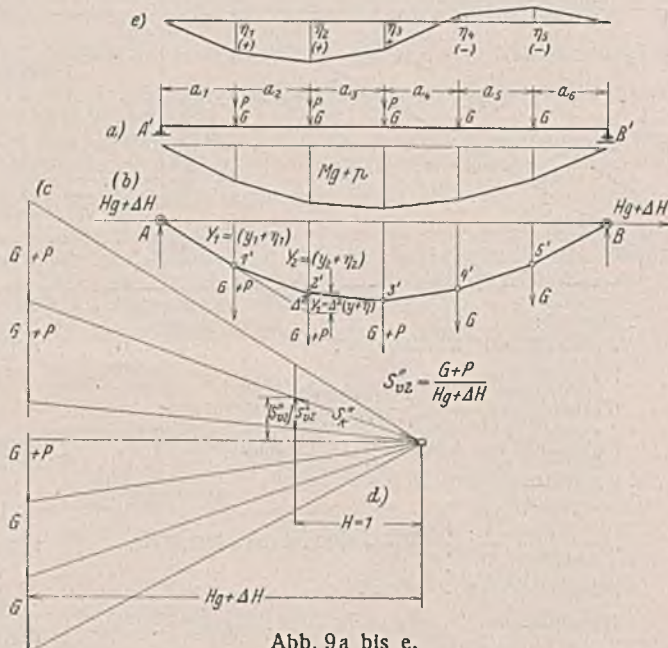 e)
η₁ η₂ η₃ η₄ η₅
(+) (+) (-) (-)
a₁ a₂ a₃ a₄ a₅ a₆
P P P
G G G G G
a) A' B'
Mg+p
(c (b)
Hg+ΔH Hg+ΔH
A B
Y₁=(y₁+η₁)
Y₂=(y₂+η₂)
1' 2' 3' 4' 5'
G+P
Δ²Y₂=Δ²(y+η)
G+P G+P G G
G+P
G+P
G+P
G
G
S″ᵥ₂ = G+P / Hg+ΔH
S″ᵥ₂
d)
H=1
Hg+ΔH
Abb. 9a bis e.